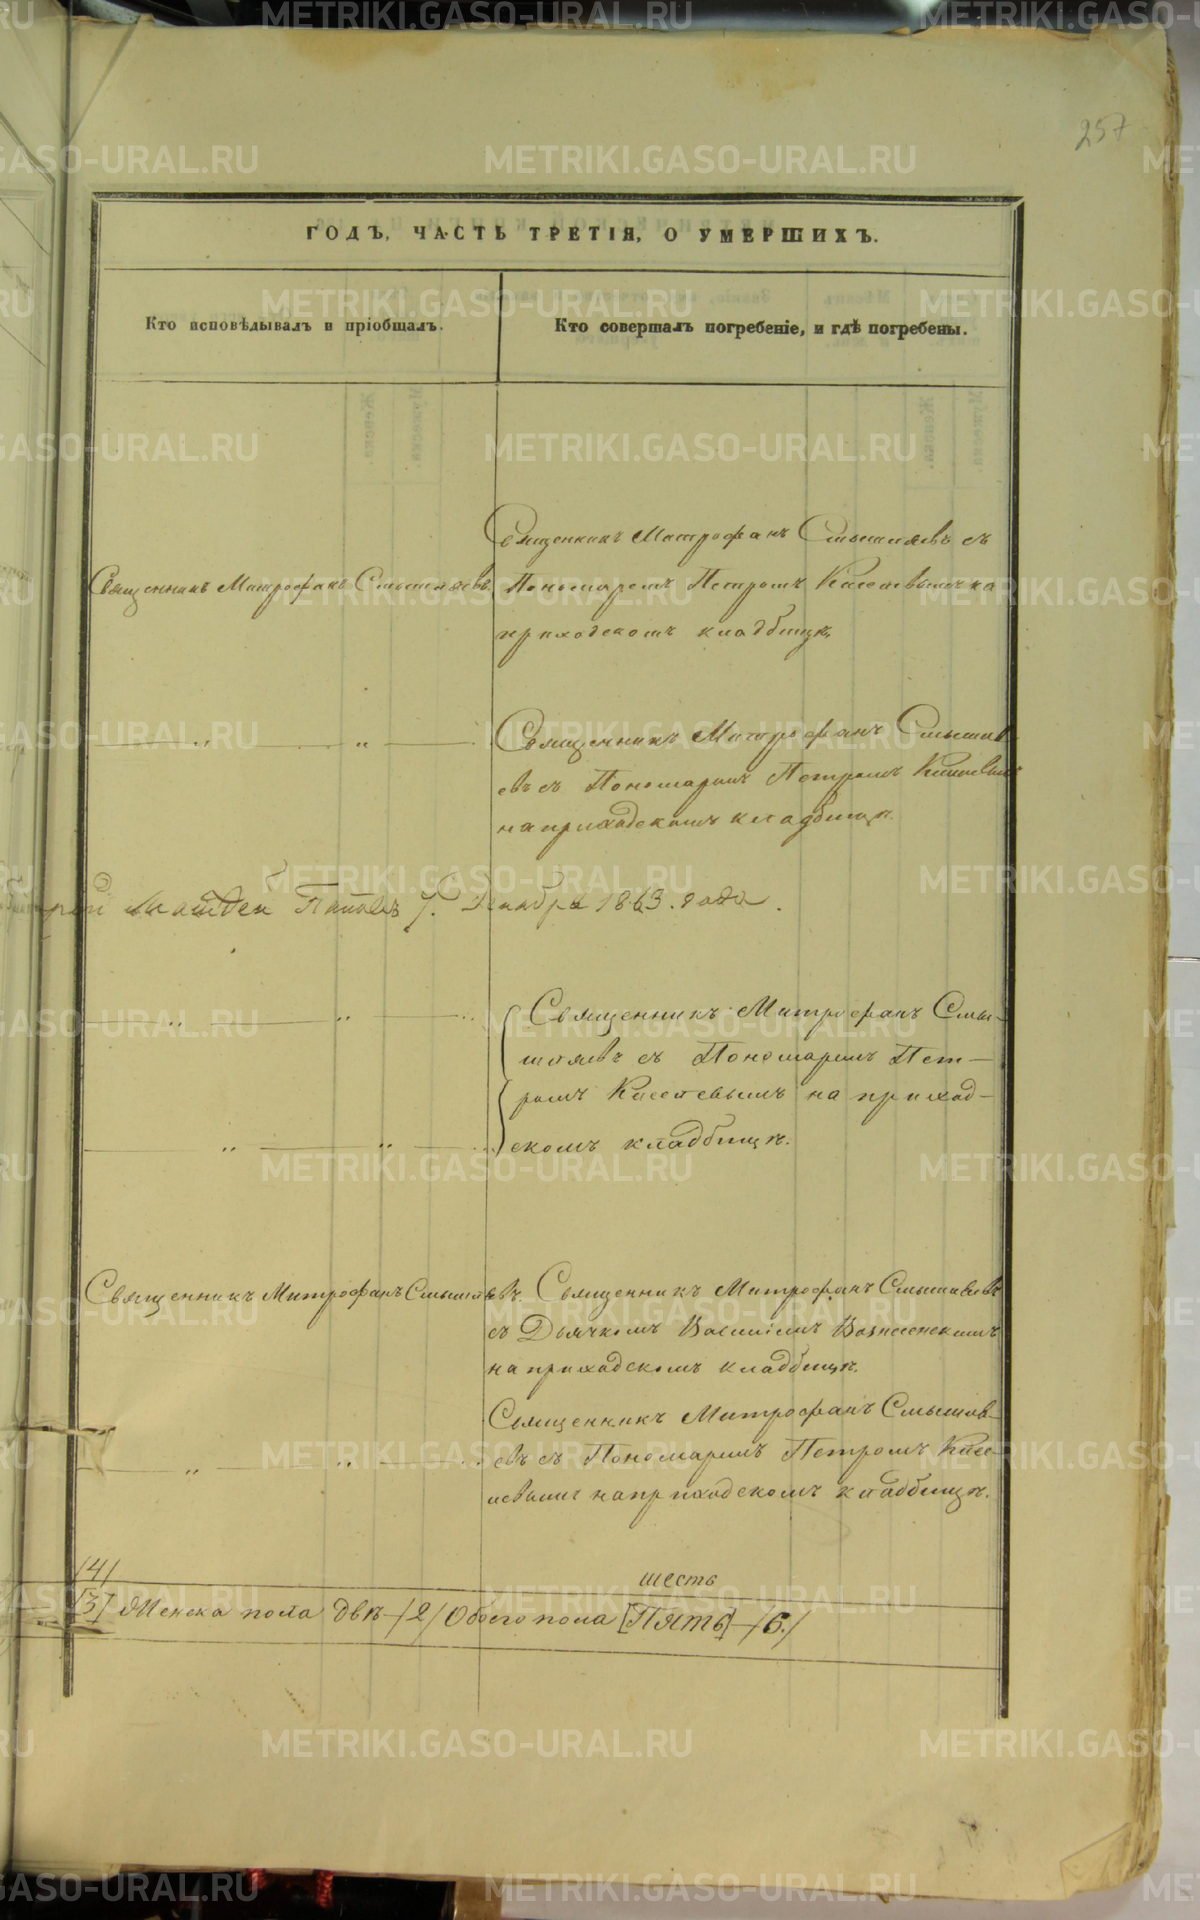 257
ГОДЪ, ЧАСТЬ ТРЕТІЯ, О УМЕРШИХЪ.
Кто исповѣдывалъ и пріобщалъ.
Кто совершалъ погребеніе, и гдѣ погребены.
Священникъ Митрофанъ Смышляевъ съ
Священникъ Митрофанъ Смышляевъ.
Пономаремъ Петромъ Киселевымъ на
приходскомъ кладбищѣ.
Священникъ Митрофанъ Смышля
евъ съ Пономаремъ Петромъ Киселевымъ
на приходскомъ кладбищѣ.
Поповъ 7. Декабря 1863. года.
Священникъ Митрофанъ Смы-
шляевъ съ Пономаремъ Пет-
ромъ Киселевымъ на приход-
скомъ кладбищѣ.
Священникъ Митрофанъ Смышляевъ.
Священникъ Митрофанъ Смышляевъ
съ Дьячкомъ Василіемъ Вознесенскимъ
на приходскомъ кладбищѣ.
Священникъ Митрофанъ Смышля-
евъ съ Пономаремъ Петромъ Кисе-
левымъ на приходскомъ кладбищѣ.
/4/
шесть
[3] Женска пола двѣ /2/ Обоего пола [Пять] /6./
METRIKI.GASO-URAL.RU